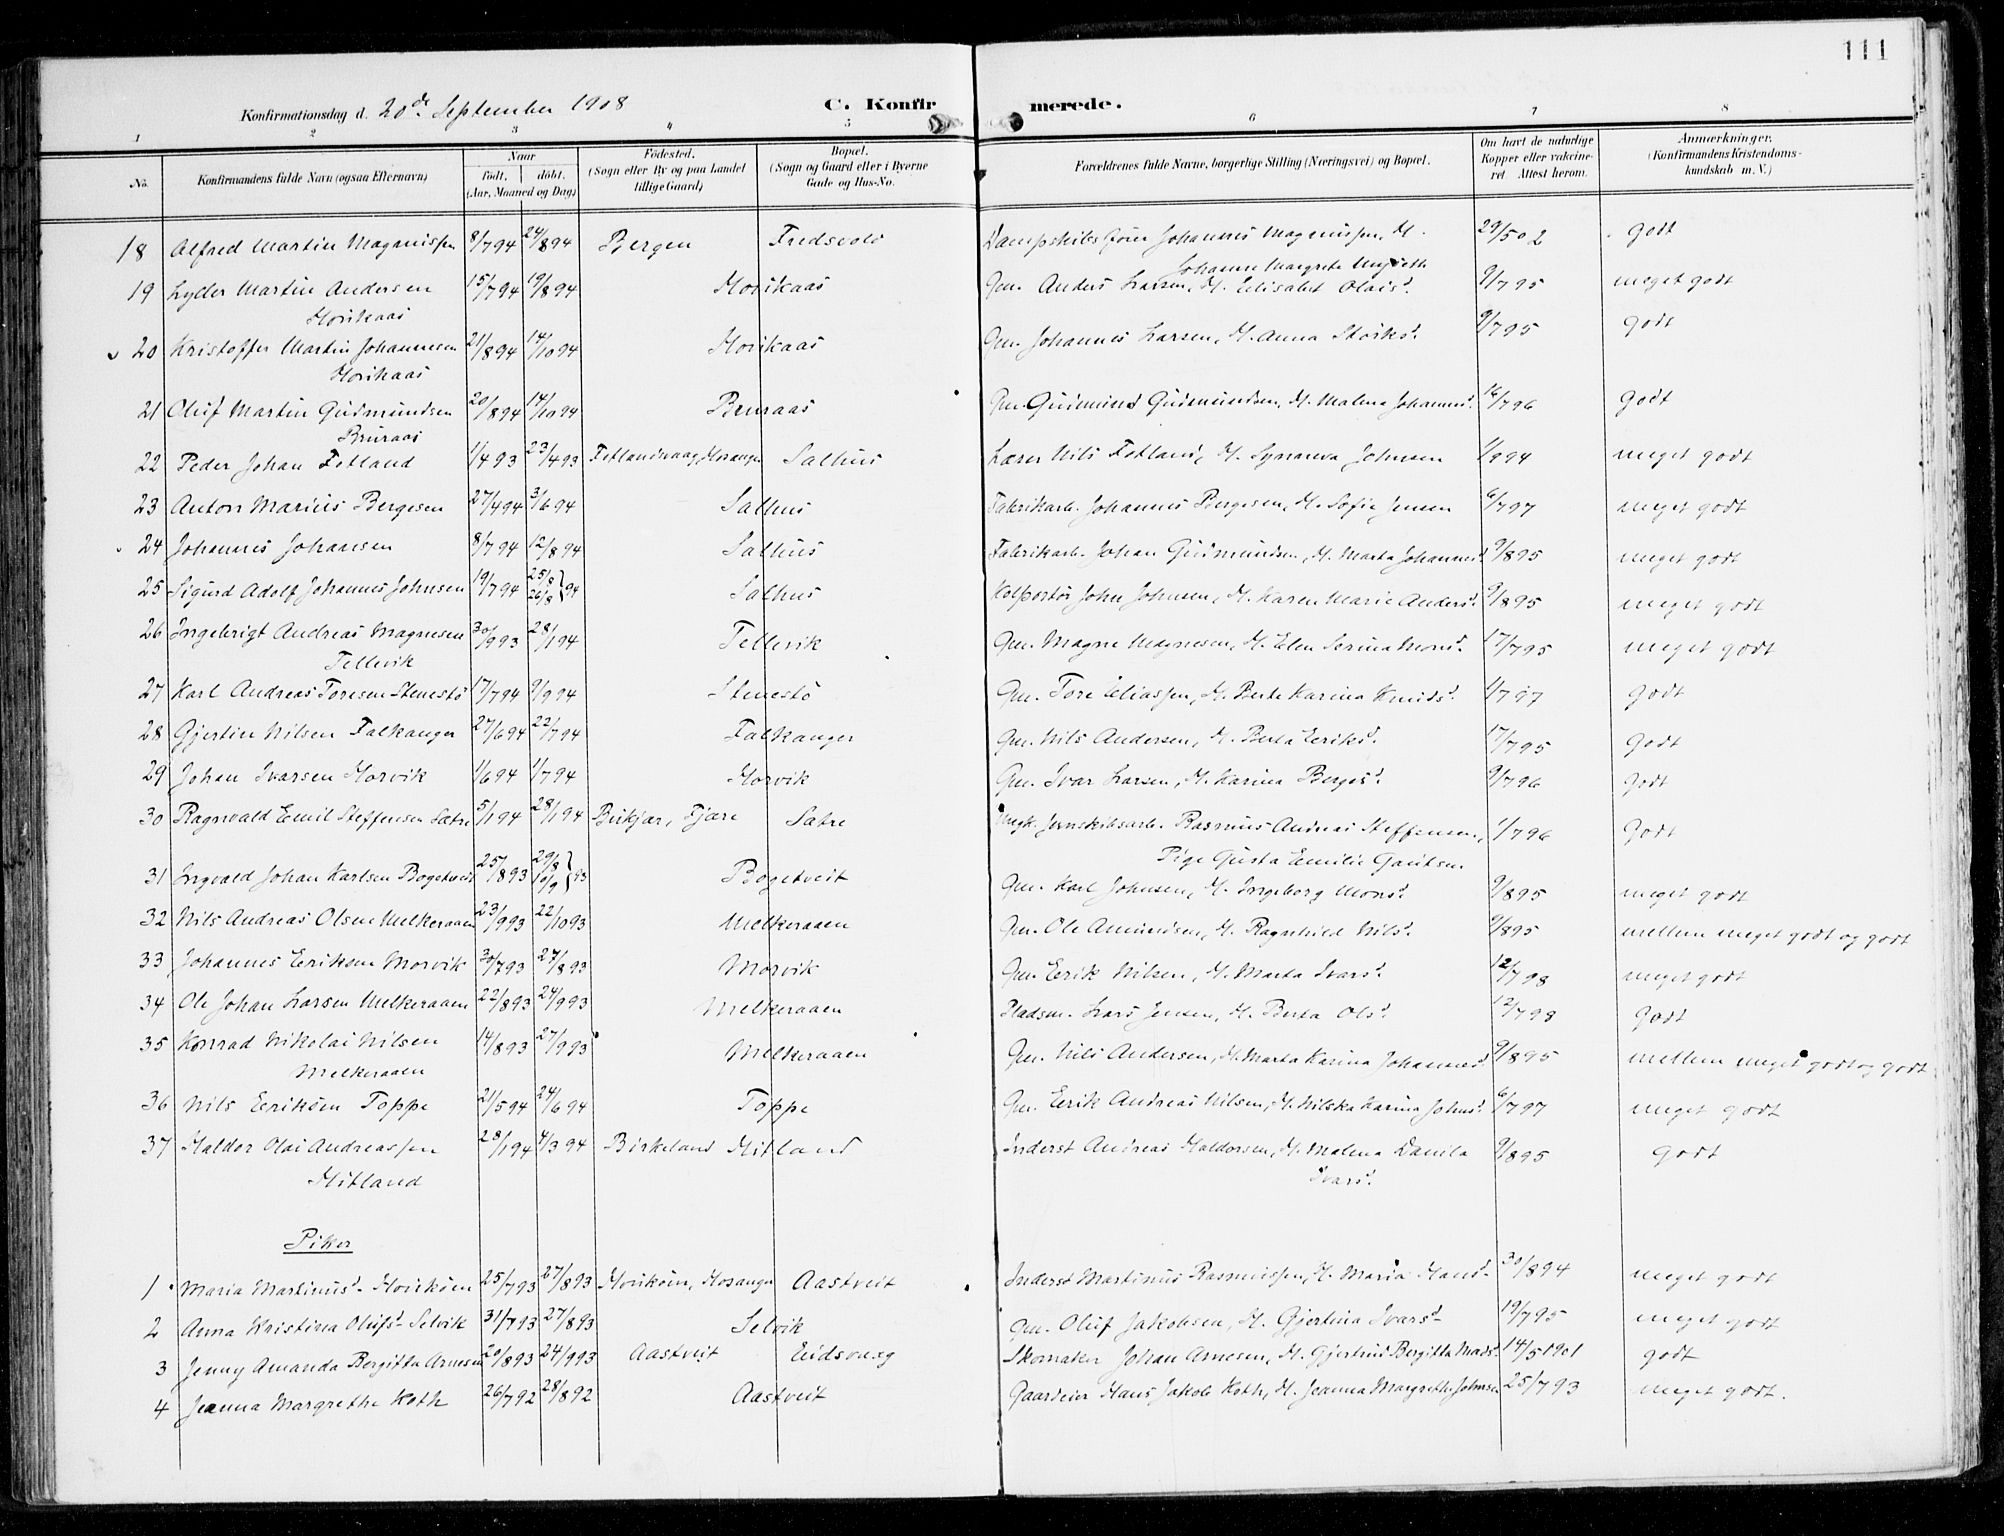 111
Konfirmationsdag d. 20de September 1908
C. Konfirmerede.
1 2 3 4 5 6 7 8
No.
Konfirmandens fulde Navn (ogsaa Efternavn)
Naar
født. døbt.
(Aar, Maaned og Dag)
Fødested.
(Sogn eller By og paa Landet tillige Gaard)
Bopæl.
(Sogn og Gaard eller i Byerne Gade og Hus-No.
Forældrenes fulde Navne, borgerlige Stilling (Næringsvei) og Bopæl.
Om havt de naturlige Kopper eller vakcineret. Attest herom.
Anmærkninger.
(Konfirmandens Kristendomskundskab m. V.)
18 Alfred Martin Magnussen 8/794 24/894 Bergen Fredsvold Dampskibsfører Johannes Magnussen, H. 29/502 godt
Johanne Margrete
19 Lyder Martin Andersen 15/794 19/894 Horikaas Gm. Anders Larsen, H. Elisabet Olaisd. 9/795 meget godt
Horikaas
20 Kristoffer Martin Johannesen 21/894 14/1094 Horikaas Gm. Johannes Larsen, H. Anna Størksd. 9/795 godt
Horikaas
21 Oluf Martin Gudmundsen 20/894 14/1094 Bruraas Gm. Gudmund Gudmundsen, H. Malena Johannesd. 16/796 godt
Bruraas
22 Peder Johan Fotland 1/493 23/493 Fotlandsvaag, Hosanger Salhus Lærer Nils Fotland, H. Synneva Johnsen 1/994 meget godt
23 Anton Marius Bergesen 27/494 3/694 Salhus Fabrikarb. Johannes Bergesen, H. Sofie Jensen 6/797 meget godt
24 Johannes Johansen 8/794 12/894 Salhus Fabrikarb. Johan Gudmundsen, H. Marta Johannesd. 9/895 meget godt
25 Sigurd Adolf Johannes Johnsen 19/794 25/8 26/8 } 94 Salhus Kolportør John Johnsen, H. Karen Marie Andersd. 9/895 meget godt
26 Ingebrigt Andreas Magnesen 30/993 28/194 Tellevik Gm. Magne Magnesen, H. Elen Serina Monsd. 17/795 meget godt
Tellevik
27 Karl Andreas Toresen Stenestø 17/794 9/994 Stenestø Gm. Tore Eliassen, H. Berte Karina Knudsd. 1/797 godt
28 Gjertin Nilsen Falkanger 27/694 22/794 Falkanger Gm. Nils Andersen, H. Berta Eeriksd. 17/795 godt
29 Johan Ivarsen Morvik 1/694 1/794 Morvik Gm. Ivar Larsen, H. Karina Bergesd. 9/796 godt
30 Ragnvald Emil Steffensen Sætre 5/194 28/194 Birkjær, Fjære Sætre Ungk. Jernskibsarb. Rasmus Andreas Steffensen, 1/796 godt
Pige Gusta Emilie Gautsen
31 Ingvald Johan Karlsen Bogetveit 25/893 29/8 10/9 } 93 Bogetveit Gm. Karl Johnsen, H. Ingeborg Monsd. 9/895 meget godt
32 Nils Andreas Olsen Melkeraaen 23/993 22/1093 Melkeraaen Gm. Ole Amundsen, H. Ragnhild Nilsd. 9/895 mellem meget godt og godt
33 Johannes Eeriksen Morvik 30/793 27/893 Morvik Gm. Eerik Nilsen, H. Marta Ivarsd. 12/798 meget godt
34 Ole Johan Larsen Melkeraaen 22/893 24/993 Melkeraaen Pladsm. Lars Jensen, H. Berta Olsd. 12/798 godt
35 Konrad Nikolai Nilsen 14/893 27/993 Melkeraaen Gm. Nils Andersen, H. Marta Karina Johannesd. 9/895 mellem meget godt og godt
Melkeraaen
36 Nils Eeriksen Toppe 21/594 24/694 Toppe Gm. Eerik Andreas Nilsen, H. Nilska Karina Johnsd. 6/797 meget godt
37 Haldor Olai Andreassen 28/194 4/394 Birkeland Hitland Inderst Andreas Haldorsen, H. Malena Danila 9/895 godt
Hitland Ivarsd.
Piker
1 Maria Martinusd. Horikøen 25/793 27/893 Horikøen, Hosanger Aastveit Inderst Martinus Rasmussen, H. Maria Hansd. 30/894 meget godt
2 Anna Kristina Olufsd. Selvik 31/793 27/893 Selvik Gm. Oluf Jakobsen, H. Gjertina Ivarsd. 19/795 meget godt
3 Jenny Amanda Bergitta Arnesen 20/893 24/993 Aastveit Eidsvaag Skomaker Johan Arnesen, H. Gjertrud Bergitta Madsd. 14/51901 godt
4 Jeanna Margrethe Koth 26/792 28/892 Aastveit Gaardeier Hans Jakob Koth, H. Jeanna Margrethe Johnsen 25/793 meget godt.